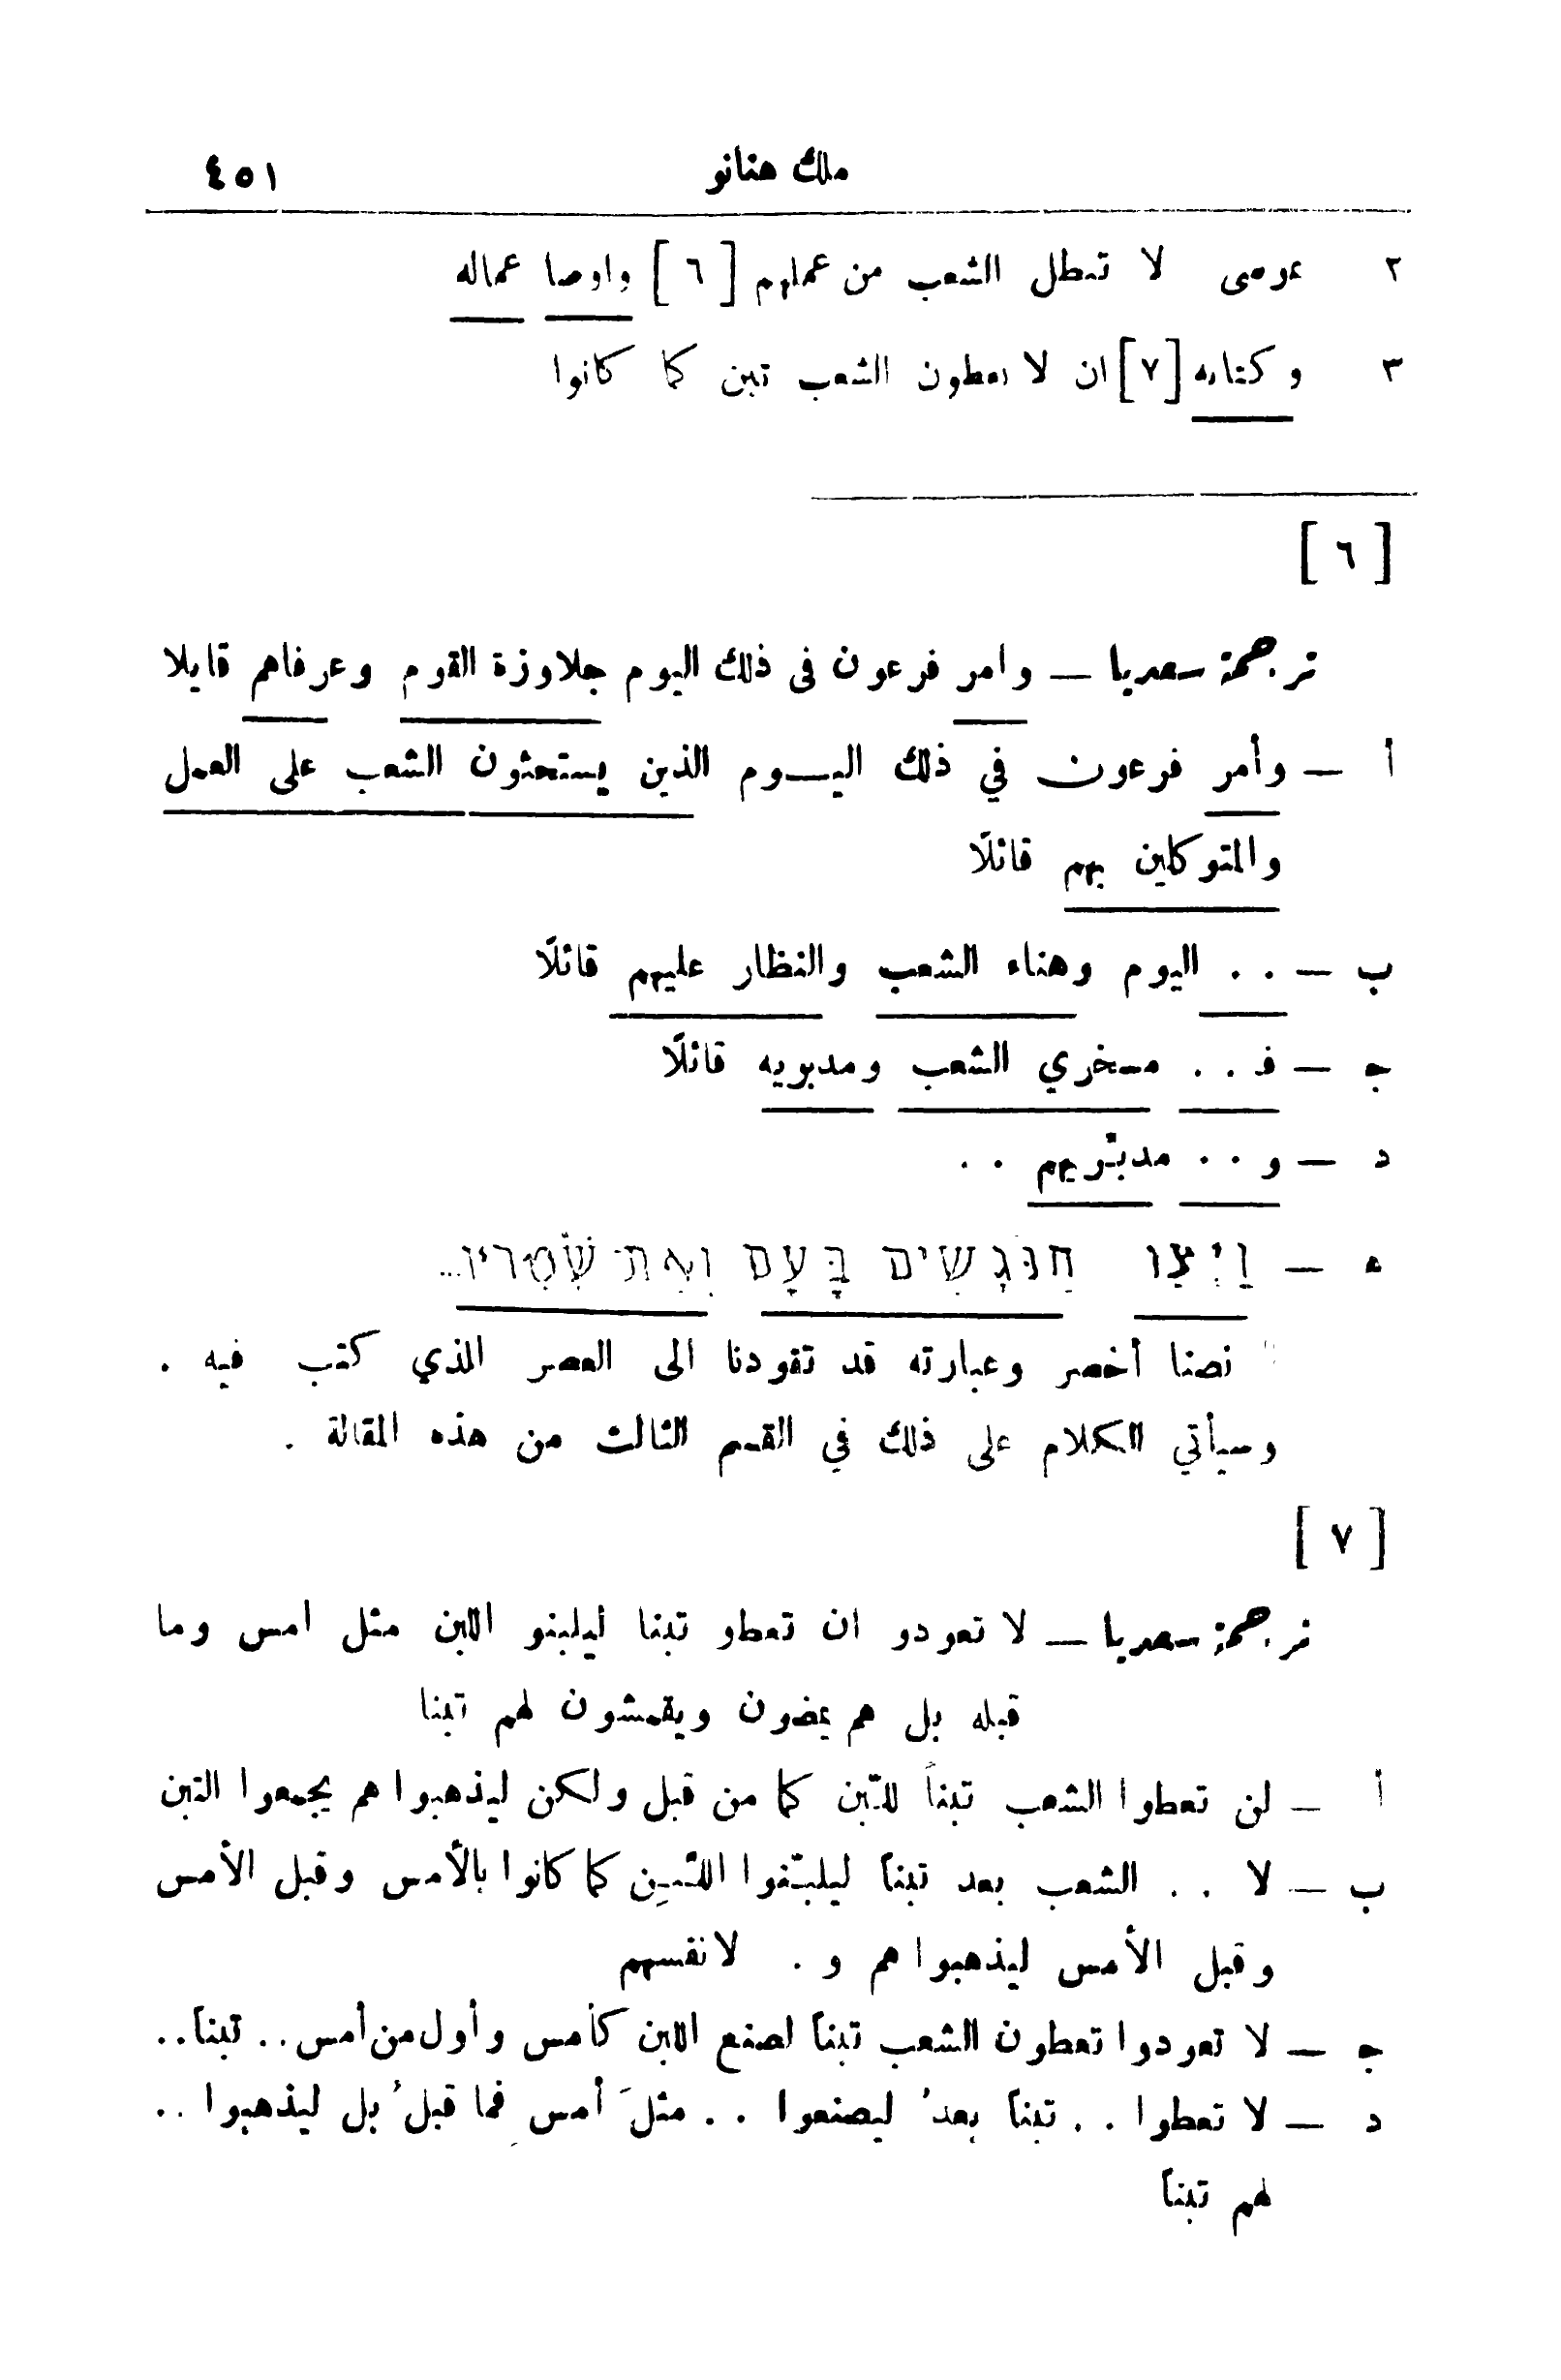 ملك هنانو ٤٥١
٢ عوسى لا تعطل الشعب من عملهم [ ٦ ] واوصا عماله
٣ وكتابه [ ٧ ] ان لا يعطون الشعب تبن كما كانوا
[ ٦ ]
ترجمة سعديا — وامر فرعون فى ذلك اليوم جلاوزة القوم وعرفاهم قايلا
أ — وأمر فرعون في ذلك اليــوم الذين يستحثون الشعب على العمل
والمتوكلين بهم قائلًا
ب — . . اليوم وهناء الشعب والنظار عليهم قائلًا
ج — فـ . . مسخري الشعب ومدبريه قائلًا
د — و . . مدبّريهم . .
ه — וַיְצַו הַנֹּגְשִׂים בָּעָם וְאֶת־שֹׁטְרָיו...
نصنا أخصر وعبارته قد تقودنا الى العصر الذي كتب فيه .
وسيأتي الكلام على ذلك في القسم الثالث من هذه المقالة .
[ ٧ ]
ترجمة سعديا — لا تعودو ان تعطو تبنا ليلبنو اللبن مثل امس وما
قبله بل هم يمضون ويقمشون لهم تبنا
أ — لن تعطوا الشعب تبناً للتّبن كما من قبل ولكن ليذهبوا هم يجمعوا التبن
ب — لا . . الشعب بعد تبناً ليلبّنوا اللبِن كما كانوا بالأمس وقبل الأمس
وقبل الأمس ليذهبوا هم و . لانفسهم
ج — لا تعودوا تعطون الشعب تبناً لصنع اللبن كأمس وأول من أمس . . تبناً . .
د — لا تعطوا . . تبناً بعدُ ليصنعوا . . مثلَ أمسِ فما قبلُ بل ليذهبوا . .
لهم تبناً